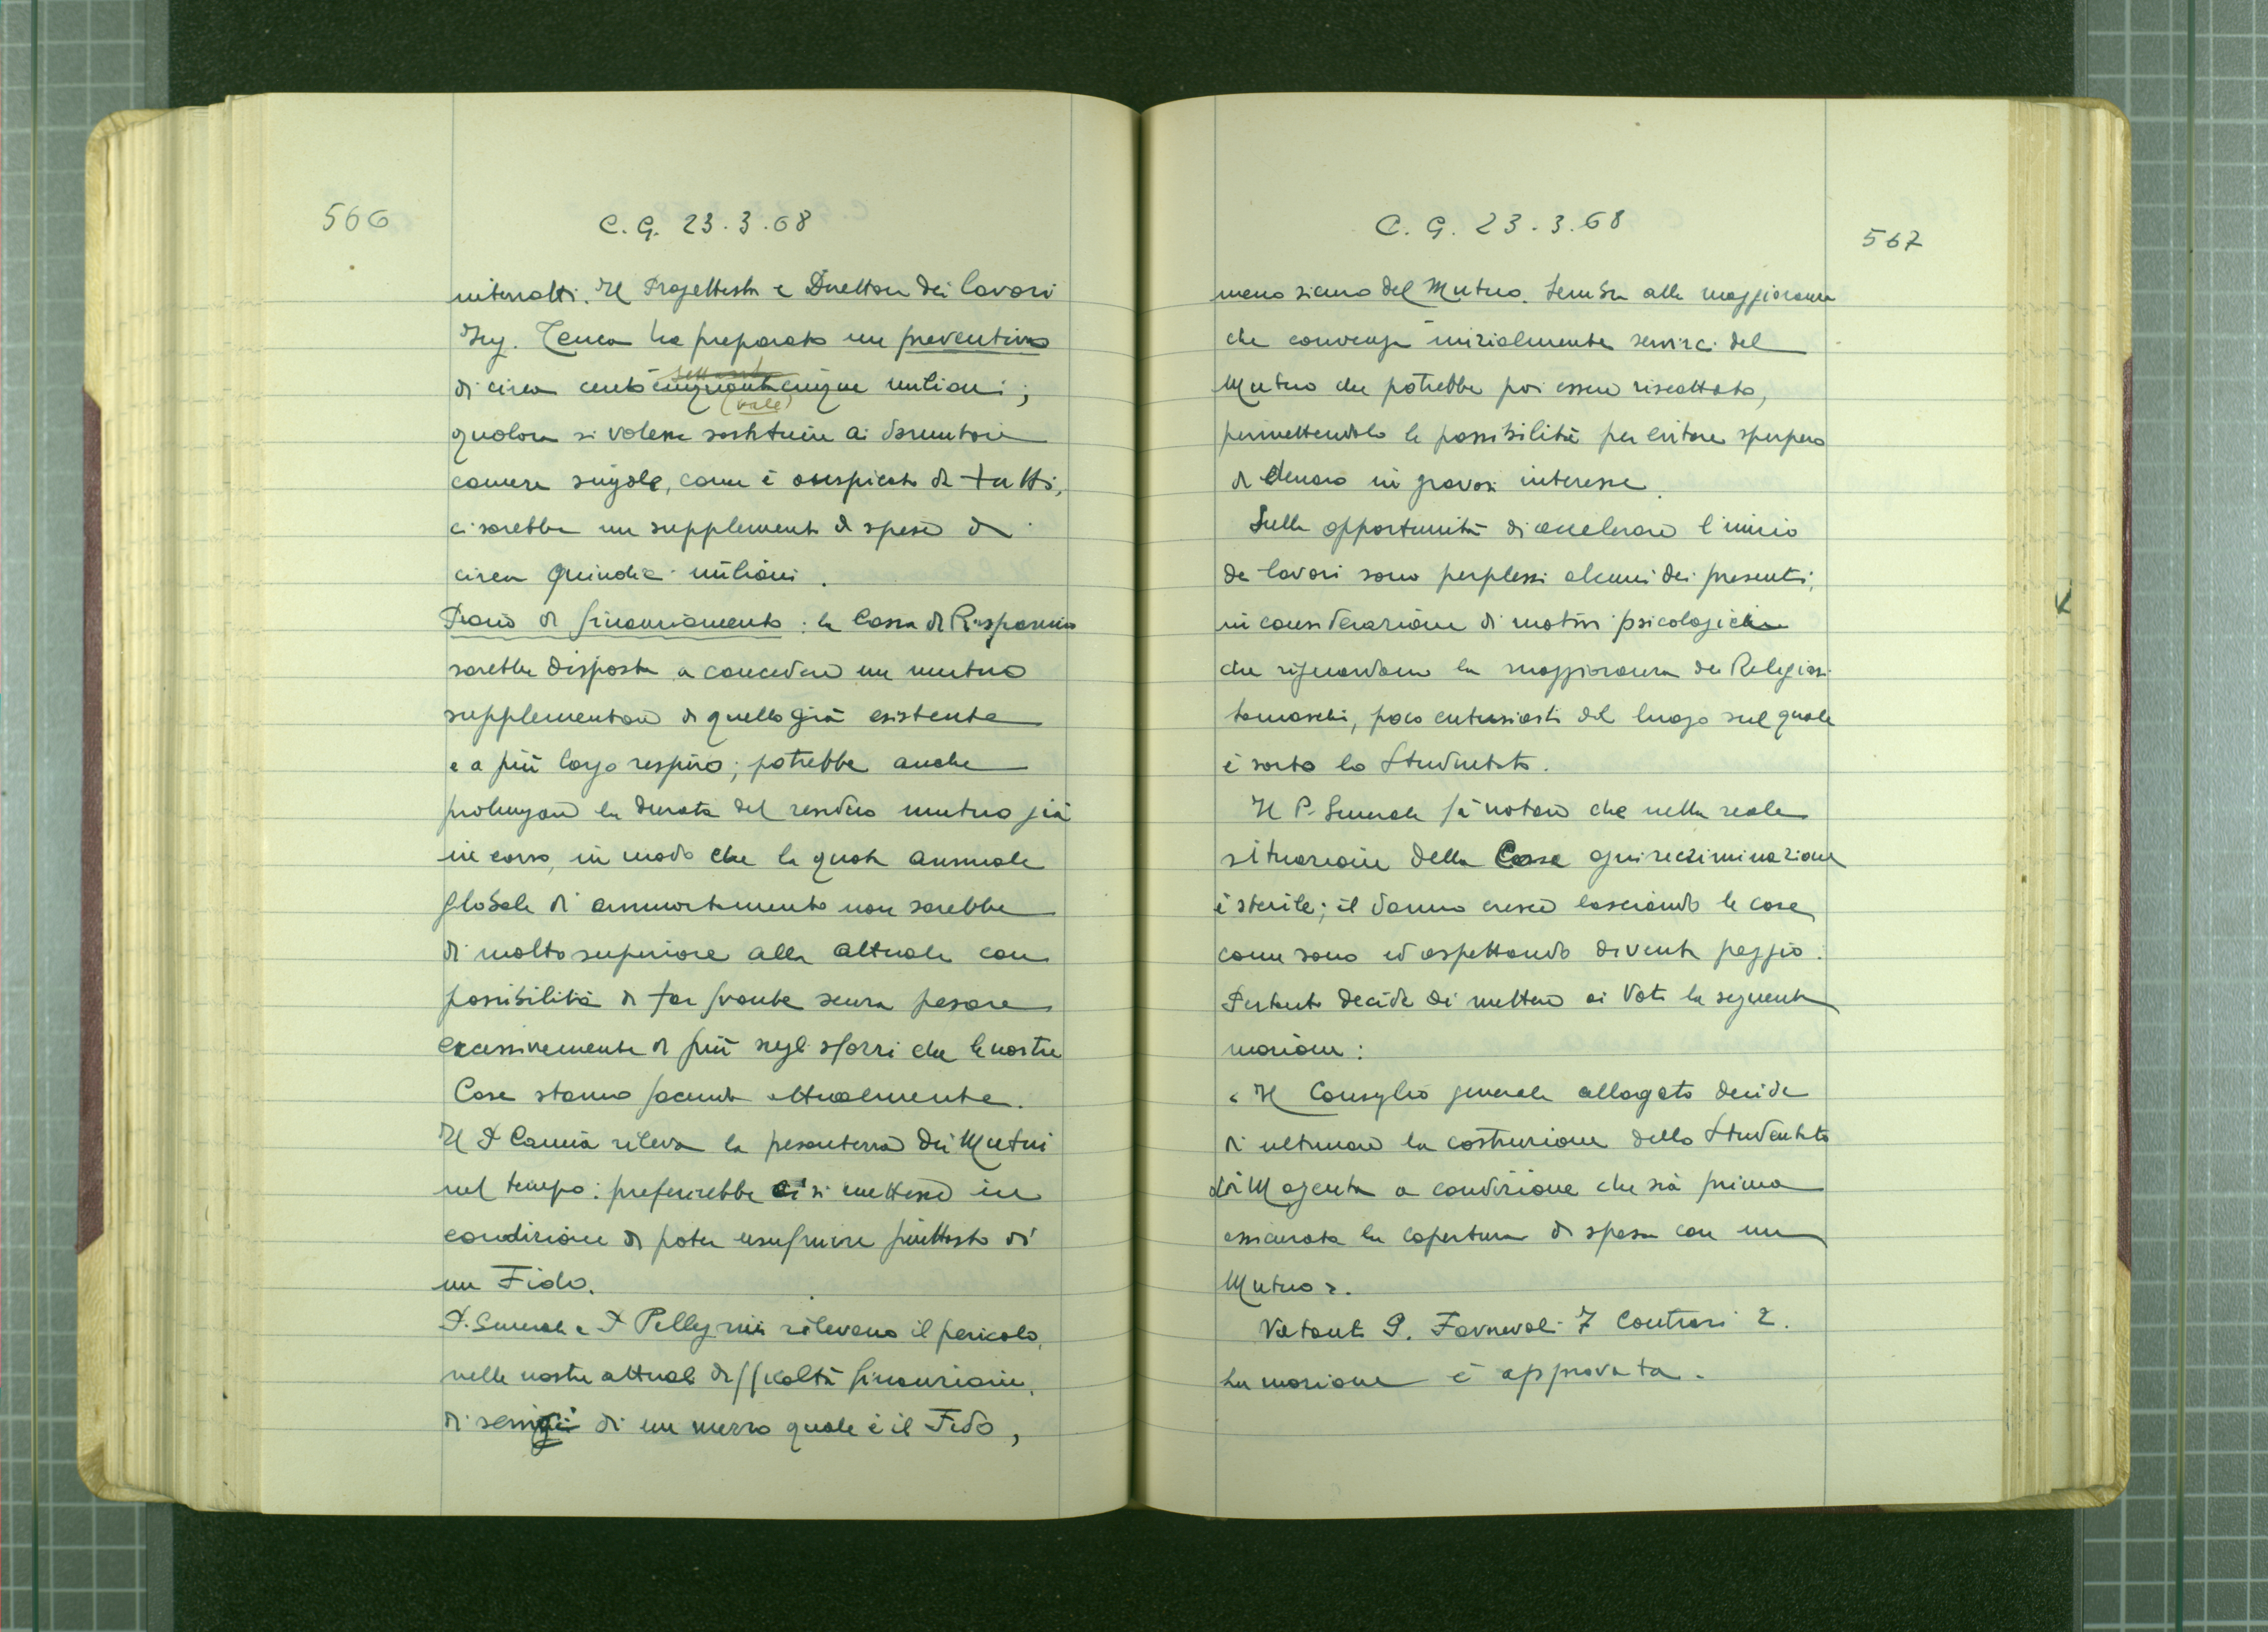 566
C. G. 23.3.68
interrotti. Il Progettista e Direttore dei lavori
Ing. Tenca ha preparato un preventivo
settanta
di circa cento cinquantacinque milioni;
(vale)
qualora si volesse sostituire ai dormitori
camere singole, come è auspicato da tutti,
ci sarebbe un supplemento di spese di
circa quindici milioni.
Piano di finanziamento: la Cassa di Risparmio
sarebbe disposta a concedere un mutuo
supplementare di quello già esistente
e a più largo respiro; potrebbe anche
prolungare la durata del residuo mutuo già
in corso, in modo che la quota annuale
globale di ammortamento non sarebbe
di molto superiore alla attuale con
possibilità di far fronte senza pesare
eccessivamente di più sugli sforzi che le nostre
Case stanno facendo attualmente.
Il P. rileva la pesantezza dei Mutui
nel tempo: preferirebbe ci si mettesse in
condizione di poter usufruire piuttosto di
un Fido.
P. Generale e P. Pellegrini rilevano il pericolo,
nelle nostre attuali difficoltà finanziarie,
di di un mezzo quale è il Fido,
C. G. 23.3.68
567
meno sicuro del Mutuo. Sembra alla maggioranza
che convenga inizialmente servirci del
Mutuo che potrebbe poi essere riscattato,
permettendolo le possibilità per evitare sperpero
di denaro in gravosi interessi.
Sulla opportunità di accelerare l'inizio
dei lavori sono perplessi alcuni dei presenti,
in considerazione di motivi psicologici
che riguardano la maggioranza dei Religiosi
somaschi, poco entusiasti del luogo sul quale
è sorto lo Studentato.
Il P. Generale fa notare che nella reale
situazione della Casa ogni recriminazione
è sterile; il danno cresce lasciando le cose
come sono ed aspettando diventa peggio.
Pertanto decide di mettere ai Voti la seguente
mozione:
« Il Consiglio generale allargato decide
di ultimare la costruzione dello Studentato
di Magenta a condizione che sia prima
assicurata la copertura di spesa con un
Mutuo ».
Votanti 9. Favorevoli 7 Contrari 2.
La mozione è approvata.